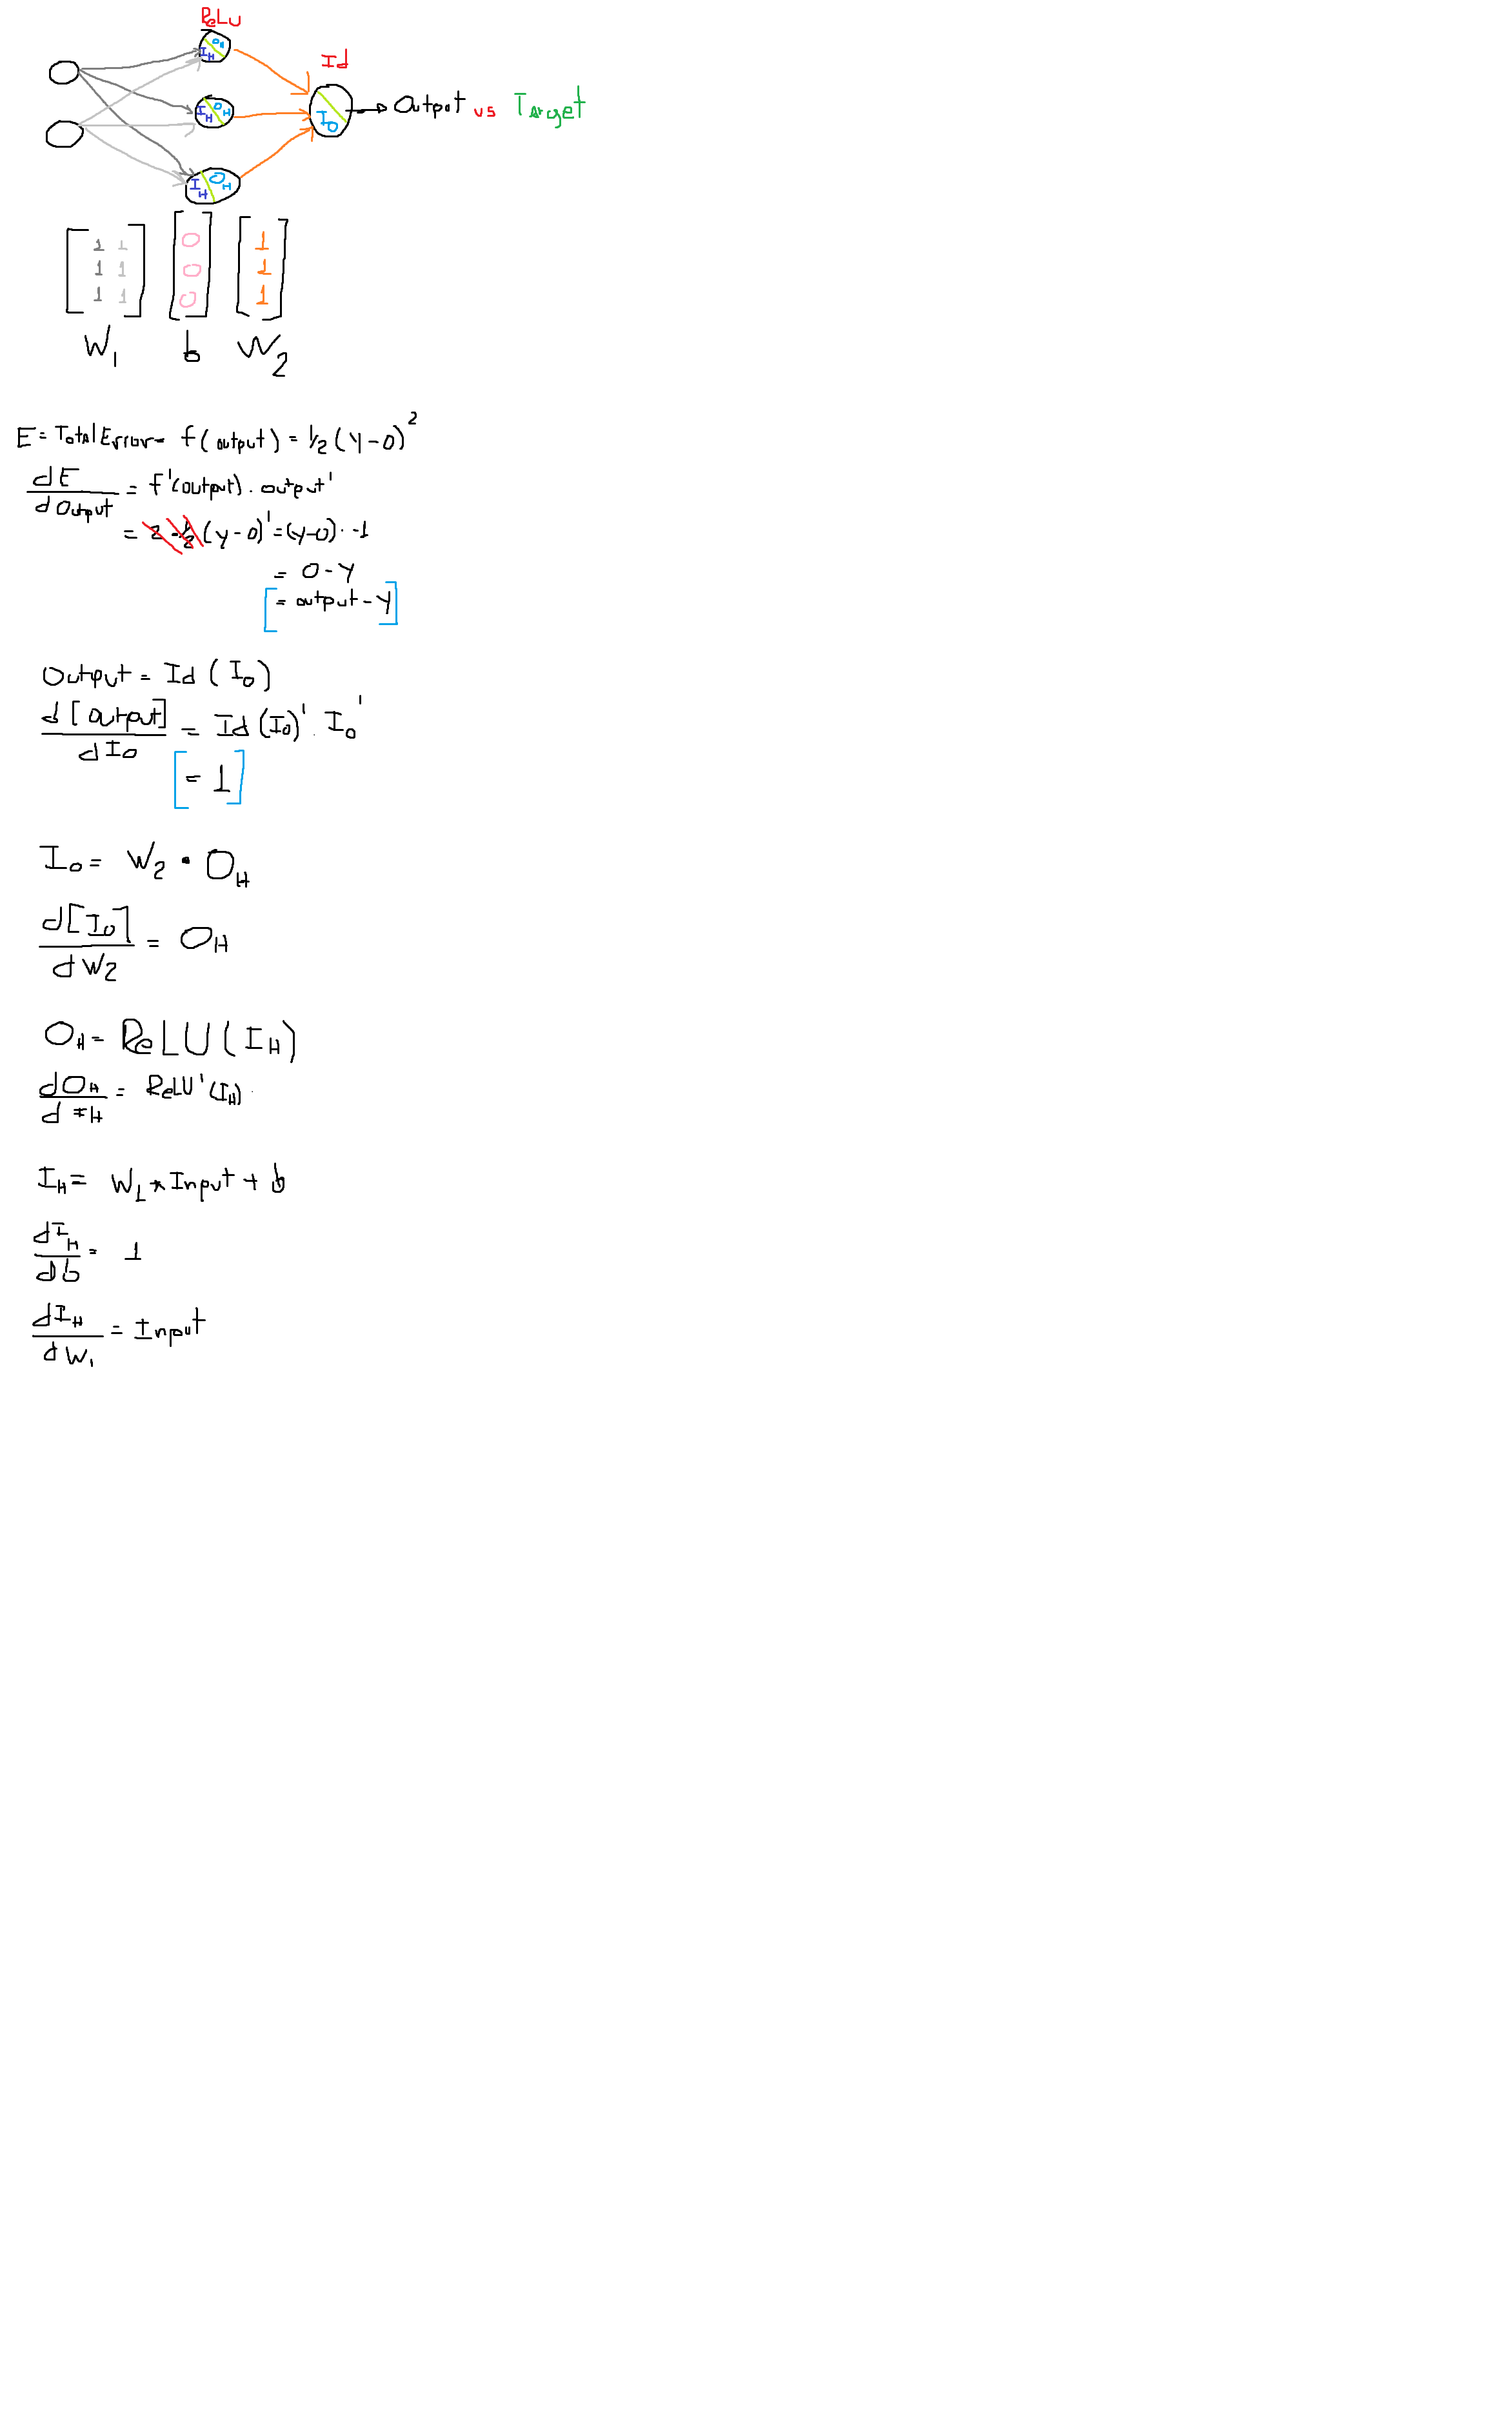 ReLu
Id
I_H O_H
I_H O_H
I_H O_H
I_O
Output vs Target
[1 1] [0] [1]
[1 1] [0] [1]
[1 1] [0] [1]
W_1 b W_2
E = Total Error = f(output) = 1/2 (y-o)^2
dE/dOutput = f'(output) · output'
= 2·1/2 (y-o)' = (y-o) · -1
= o-y
[= output-y]
Output = Id (I_O)
d[output]/dI_O = Id(I_O)' · I_O'
[= 1]
I_O = W_2 · O_H
d[I_O]/dW_2 = O_H
O_H = ReLU(I_H)
dO_H/dI_H = ReLU'(I_H) ·
I_H = W_1 * Input + b
dI_H/db = 1
dI_H/dW_1 = Input